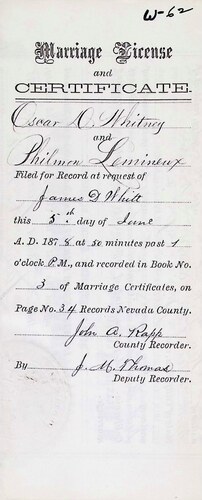 W-62
Marriage License
and
CERTIFICATE.
Oscar O. Whitney
and
Philmen Lemineux
Filed for Record at request of
James D Whitt
this 5th day of June
A. D. 1878 at 50 minutes past 1
o'clock P.M., and recorded in Book No.
3 of Marriage Certificates, on
Page No. 34 Records Nevada County.
John A. Rapp
County Recorder.
By J. M. Thomas
Deputy Recorder.